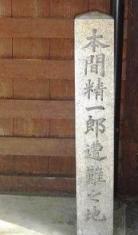 本間精一郎遭難之地